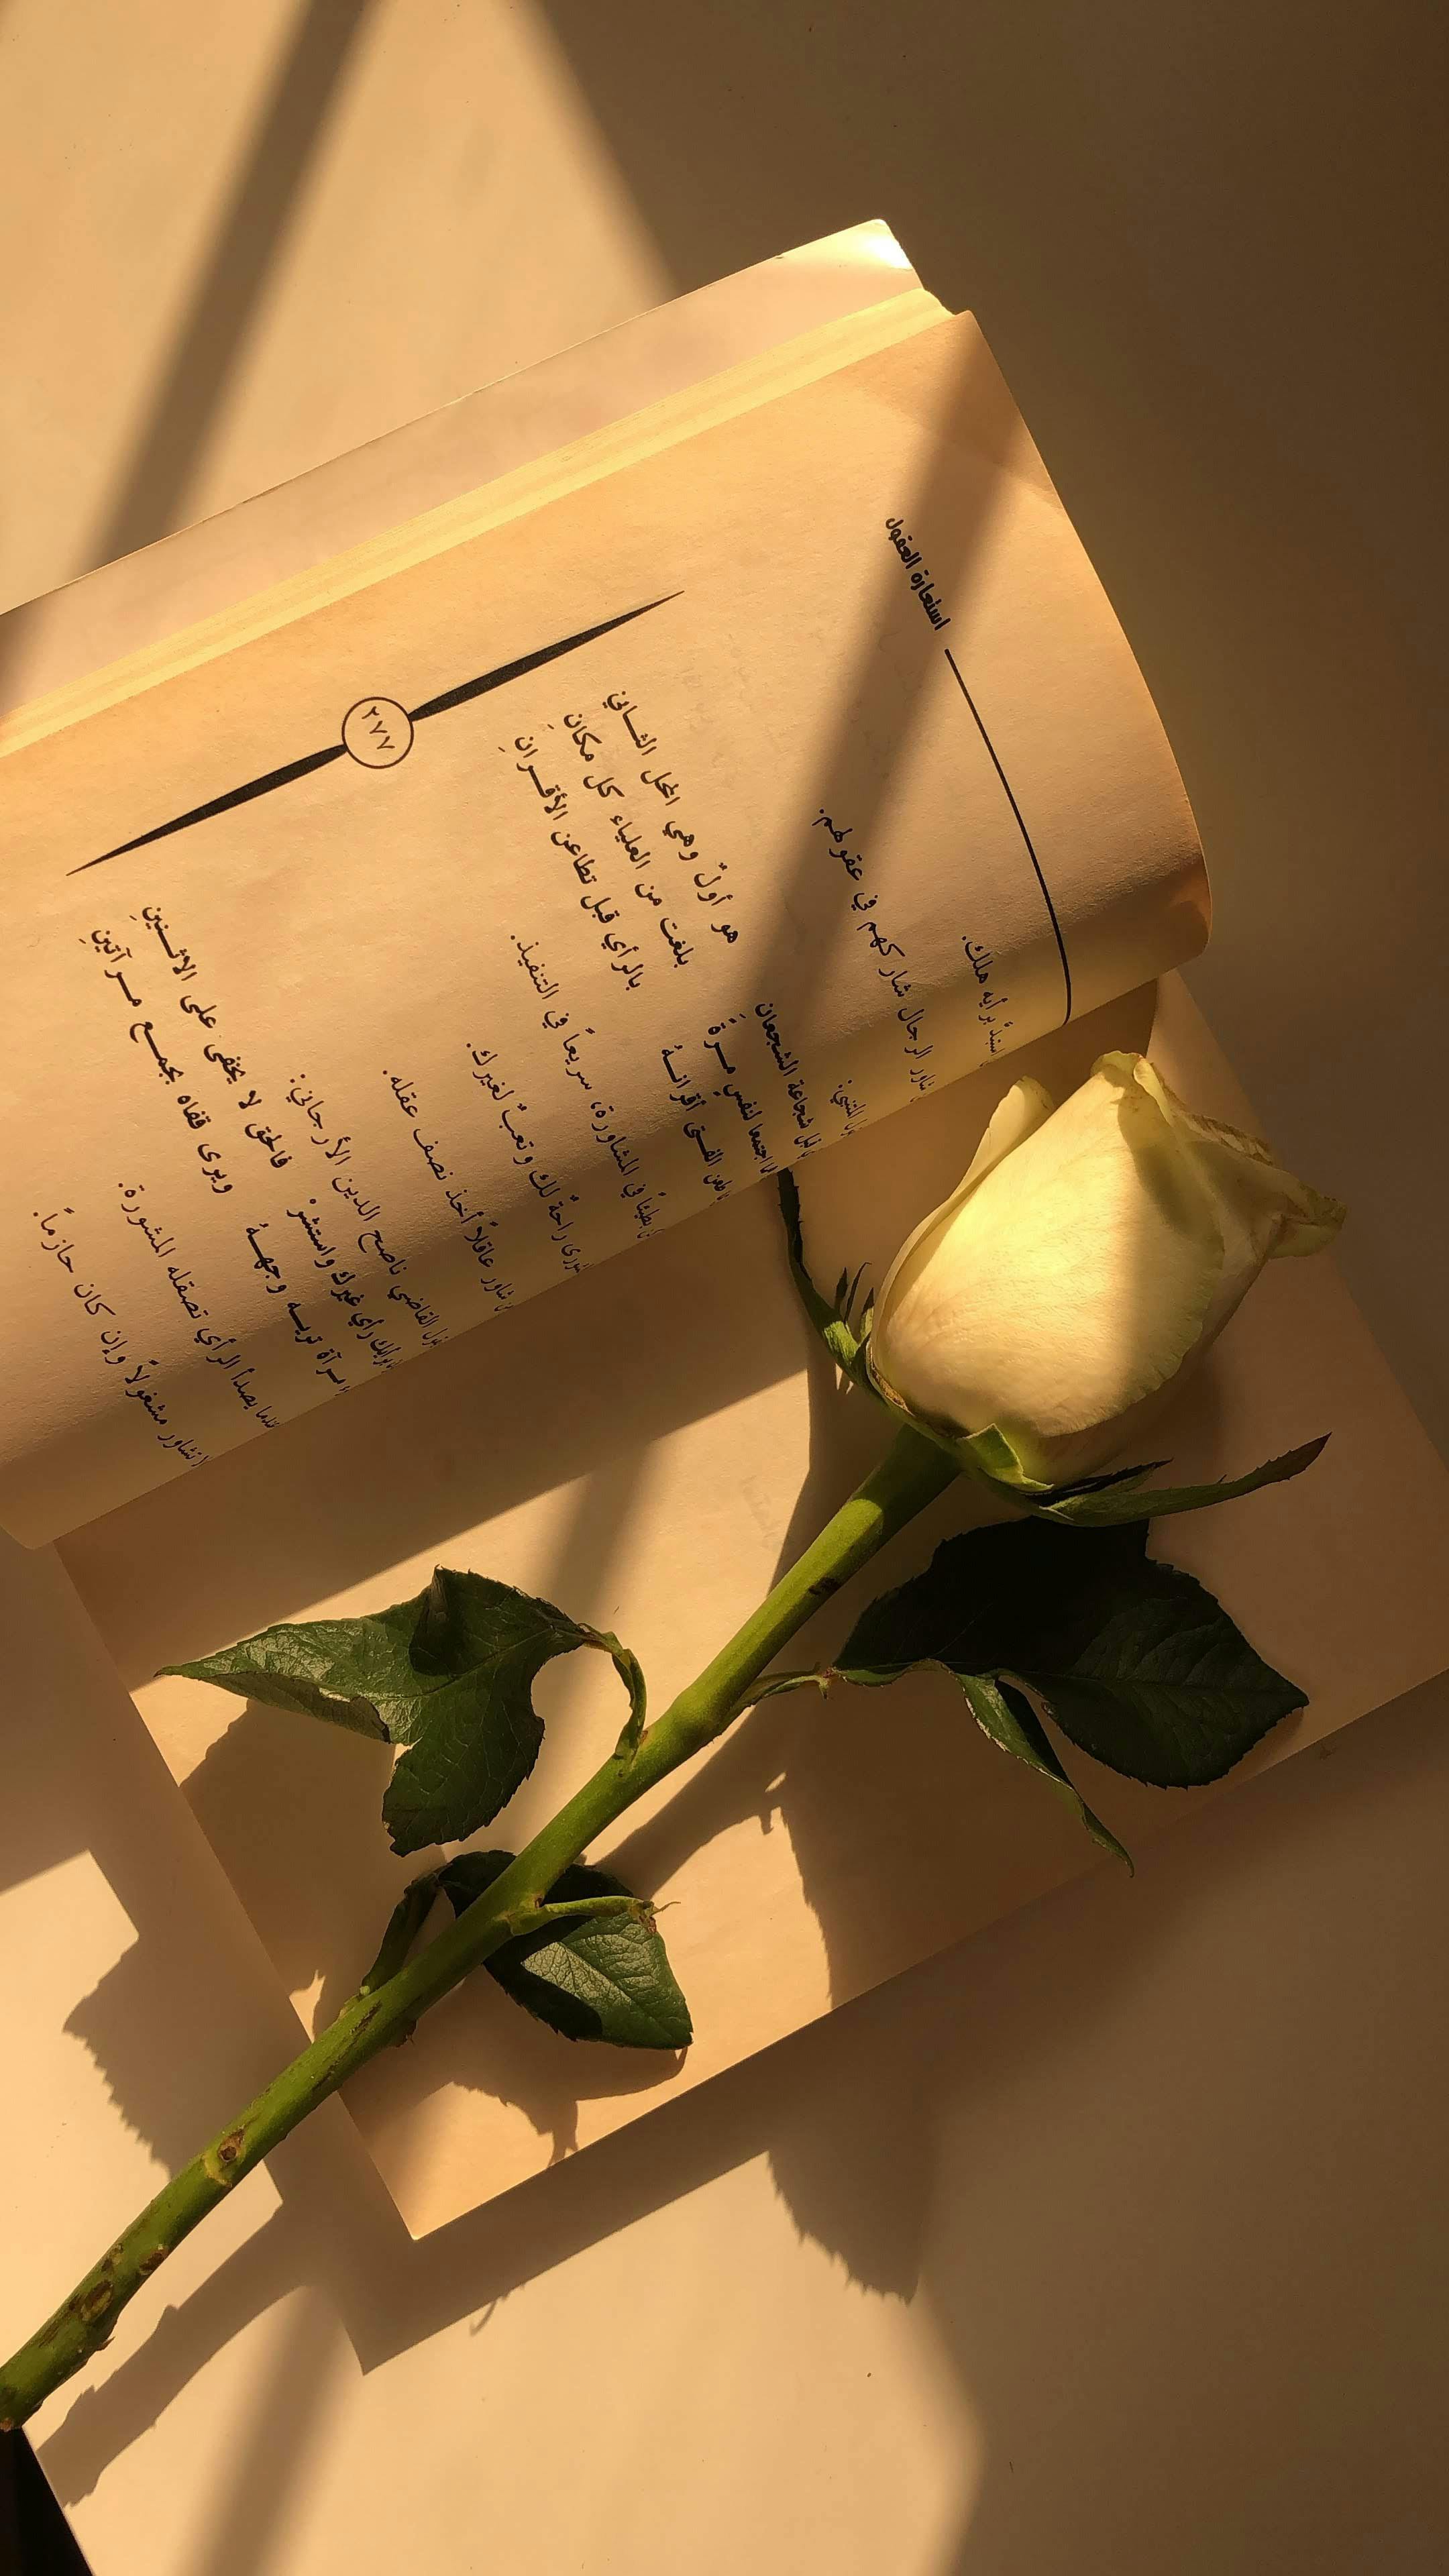 استعارة العقول
استبدَّ برأيه هلك.
شاور الرجال شاركهم في عقولهم.
المتنبي:
قبل شجاعة الشجعان هو أولٌ وهي المحل الثـاني
اجتمعا لنفسٍ مـرةً بلغت من العلياء كل مكانِ
طعن الفتـى أقرانـهُ بالرأي قبل تطاعن الأقـرانِ
بطيئاً في المشاورة، سريعاً في التنفيذ.
راحةٌ لك وتعبٌ لغيرك.
شاور عاقلاً أخذ نصف عقله.
القاضي ناصح الدين الأرجاني:
رأي غيرك واستشرْ فالحق لا يخفى على الاثـنينِ
مـرآة تريـه وجهـهُ ويرى قفاه بجمـع مـرآتينِ
يصدأ الرأي تصقله المشورة.
تشاور مشغولاً وإن كان حازماً.
٢٧٧